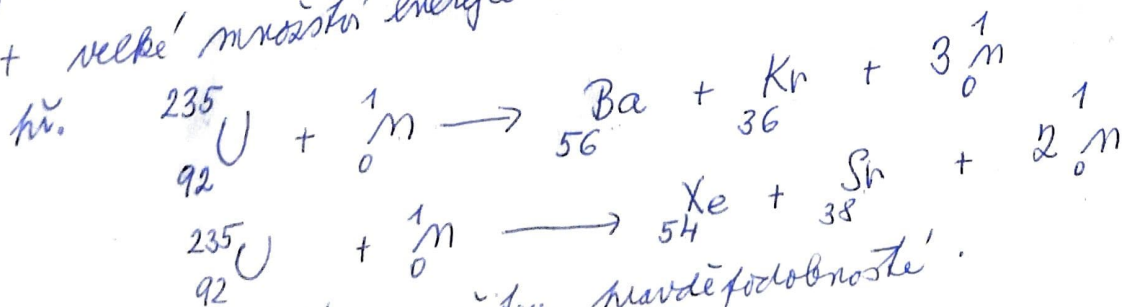 + velké množství energie
př. ²³⁵₉₂U + ¹₀n → ₅₆Ba + ₃₆Kr + 3 ¹₀n
²³⁵₉₂U + ¹₀n → ₅₄Xe + ₃₈Sr + 2 ¹₀n
pravděpodobností.